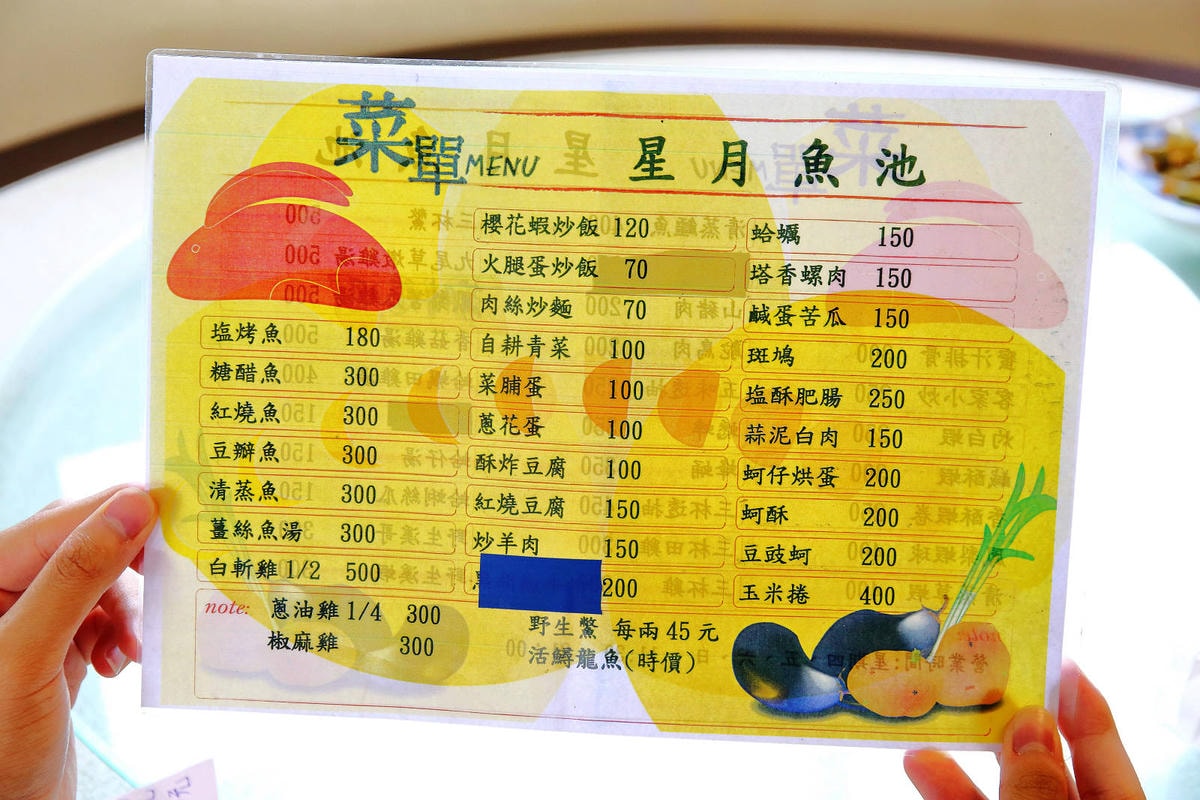 菜單MENU 星月魚池
塩烤魚 180
糖醋魚 300
紅燒魚 300
豆瓣魚 300
清蒸魚 300
薑絲魚湯 300
白斬雞1/2 500
note: 蔥油雞1/4 300
椒麻雞 300
櫻花蝦炒飯 120
火腿蛋炒飯 70
肉絲炒麵 70
自耕青菜 100
菜脯蛋 100
蔥花蛋 100
酥炸豆腐 100
紅燒豆腐 150
炒羊肉 150
200
野生鱉 每兩45元
活鱘龍魚(時價)
蛤蠣 150
塔香螺肉 150
鹹蛋苦瓜 150
斑鳩 200
塩酥肥腸 250
蒜泥白肉 150
蚵仔烘蛋 200
蚵酥 200
豆豉蚵 200
玉米捲 400